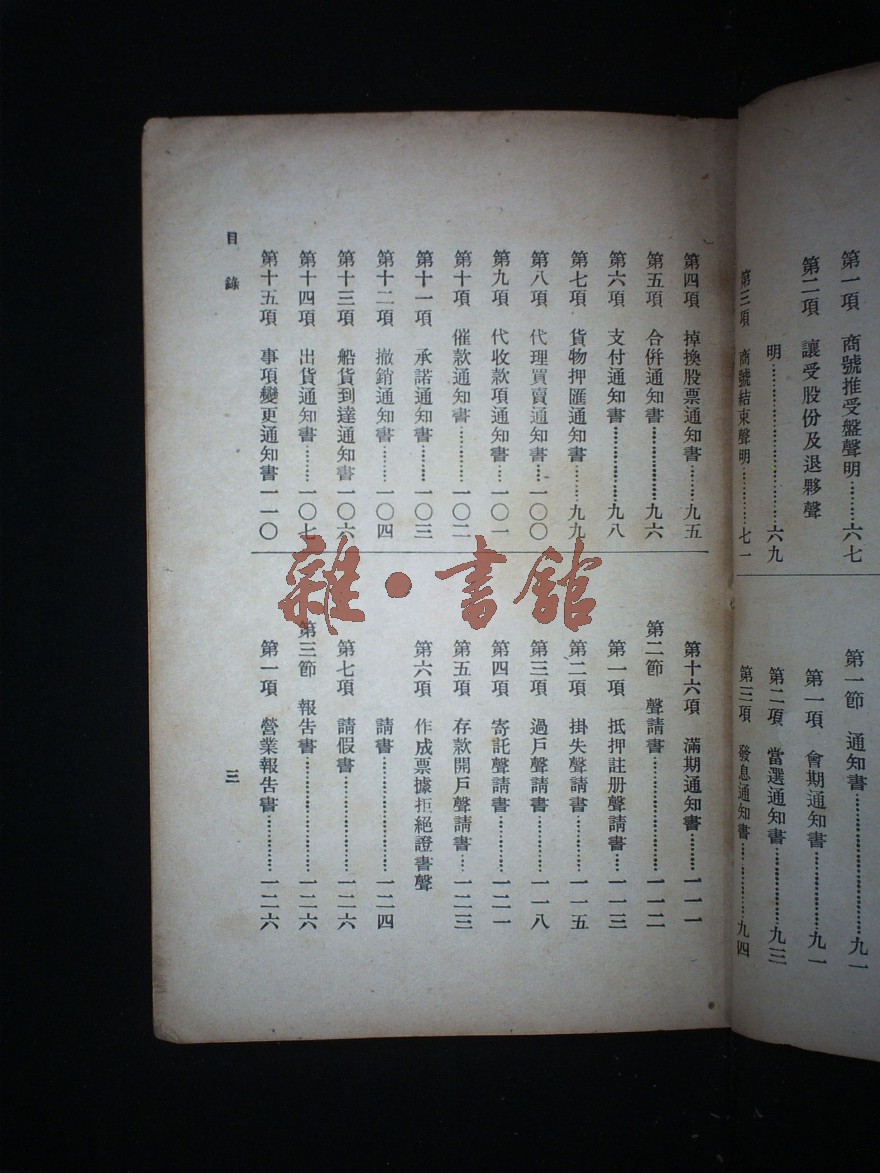 第一項　商號推受盤聲明………六七
第二項　讓受股份及退夥聲
明……………………六九
第三項　商號結束聲明………七一
第一節　通知書……………………九一
第一項　會期通知書……………九一
第二項　當選通知書……………九三
第三項　發息通知書……………九四
第四項　掉換股票通知書………九五
第五項　合併通知書……………九六
第六項　支付通知書……………九八
第七項　貨物押匯通知書………九九
第八項　代理買賣通知書…一〇〇
第九項　代收款項通知書…一〇一
第十項　催款通知書…………一〇二
第十一項　承諾通知書………一〇三
第十二項　撤銷通知書………一〇四
第十三項　船貨到達通知書一〇六
第十四項　出貨通知書………一〇七
第十五項　事項變更通知書一一〇
第十六項　滿期通知書………一一一
第二節　聲請書…………………一一二
第一項　抵押註册聲請書…一一三
第二項　掛失聲請書…………一一五
第三項　過戶聲請書…………一一八
第四項　寄託聲請書…………一二一
第五項　存款開戶聲請書…一二三
第六項　作成票據拒絕證書聲
請書……………………一二四
第七項　請假書………………一二六
第三節　報告書…………………一二六
第一項　營業報告書…………一二六
目錄
三
雜·書館